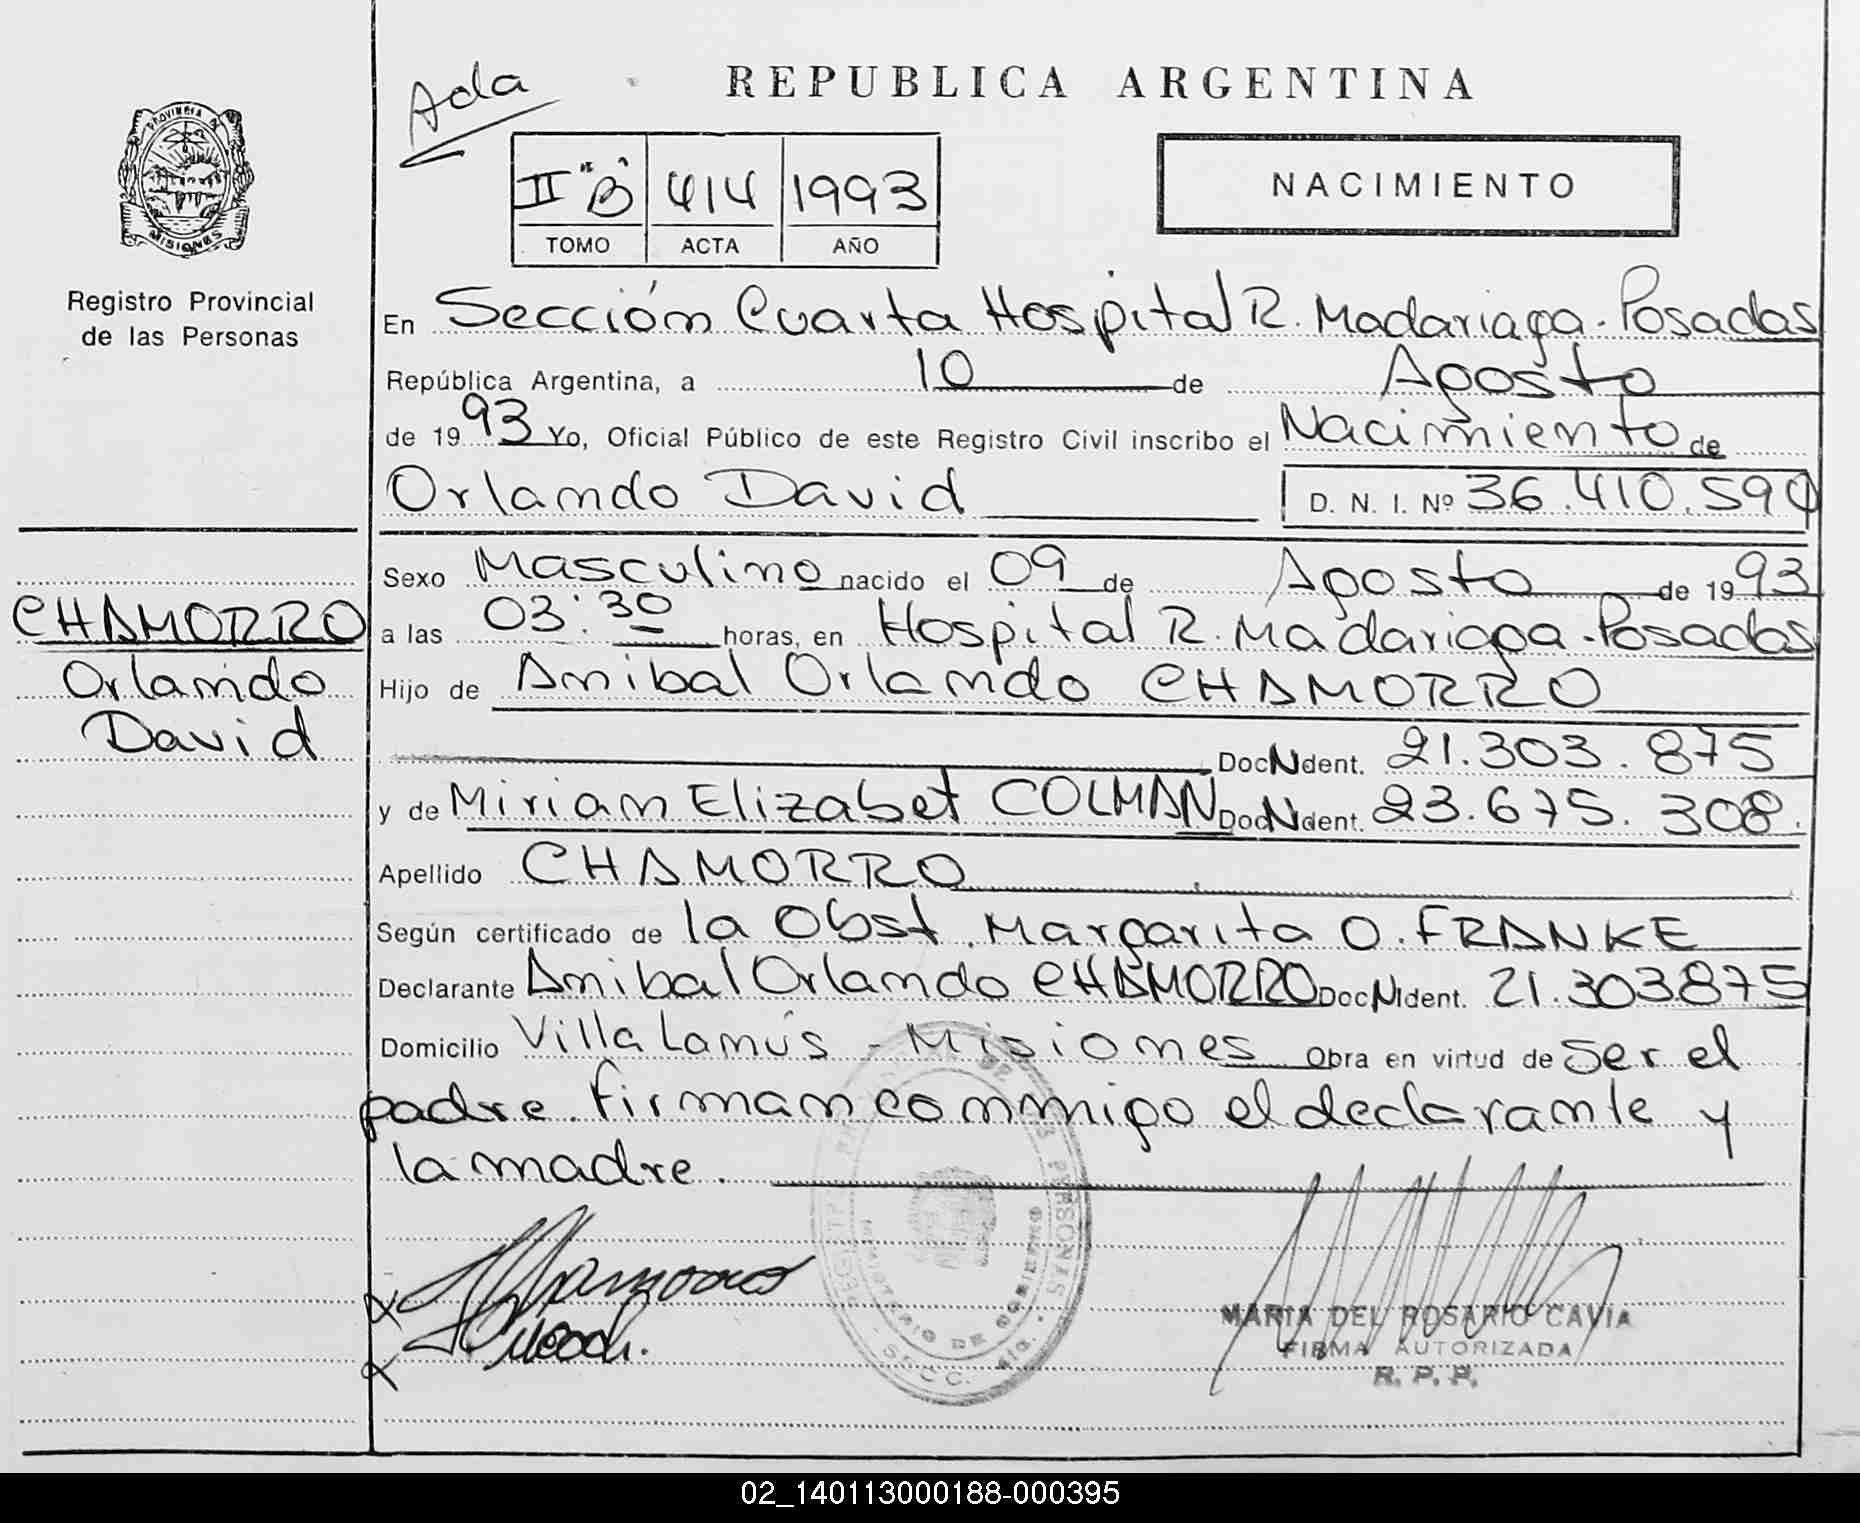 Ada
REPUBLICA ARGENTINA
PROVINCIA DE
MISIONES
Registro Provincial
de las Personas
II "B" 414 1993
TOMO ACTA AÑO
NACIMIENTO
En Sección Cuarta Hospital R. Madariaga - Posadas
República Argentina, a 10 de Agosto
de 1993 Yo, Oficial Público de este Registro Civil inscribo el Nacimiento de
Orlando David D. N. I. Nº 36.410.590
Sexo Masculino nacido el 09 de Agosto de 1993
a las 03:30 horas, en Hospital R. Madariaga - Posadas
CHAMORRO
Orlando
David
Hijo de Anibal Orlando CHAMORRO
Doc N Ident. 21.303.875
y de Miriam Elizabet COLMAN Doc N Ident. 23.675.308.
Apellido CHAMORRO
Según certificado de la Obst. Margarita O. FRANKE
Declarante Anibal Orlando CHAMORRO Doc N Ident. 21.303875
Domicilio Villa Lanús - Misiones Obra en virtud de ser el
padre. Firman conmigo el declarante y
la madre.
MARIA DEL ROSARIO CAVIA
FIRMA AUTORIZADA
R. P. P.
02_140113000188-000395